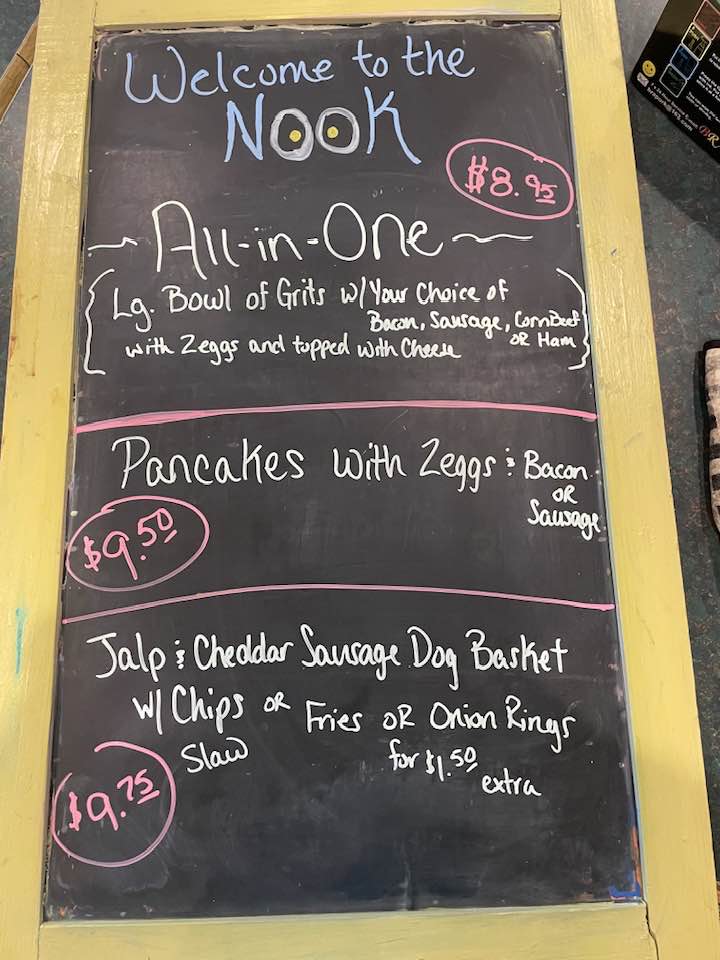 Welcome to the
NOOK
$8.95
All-in-One
Lg. Bowl of Grits w/ Your Choice of
Bacon, Sausage, CornBeef
OR Ham
with 2eggs and topped with Cheese
Pancakes with 2eggs & Bacon
OR
Sausage
$9.50
Jalp & Cheddar Sausage Dog Basket
w/ Chips OR Fries OR Onion Rings
Slaw
for $1.50
extra
$9.75